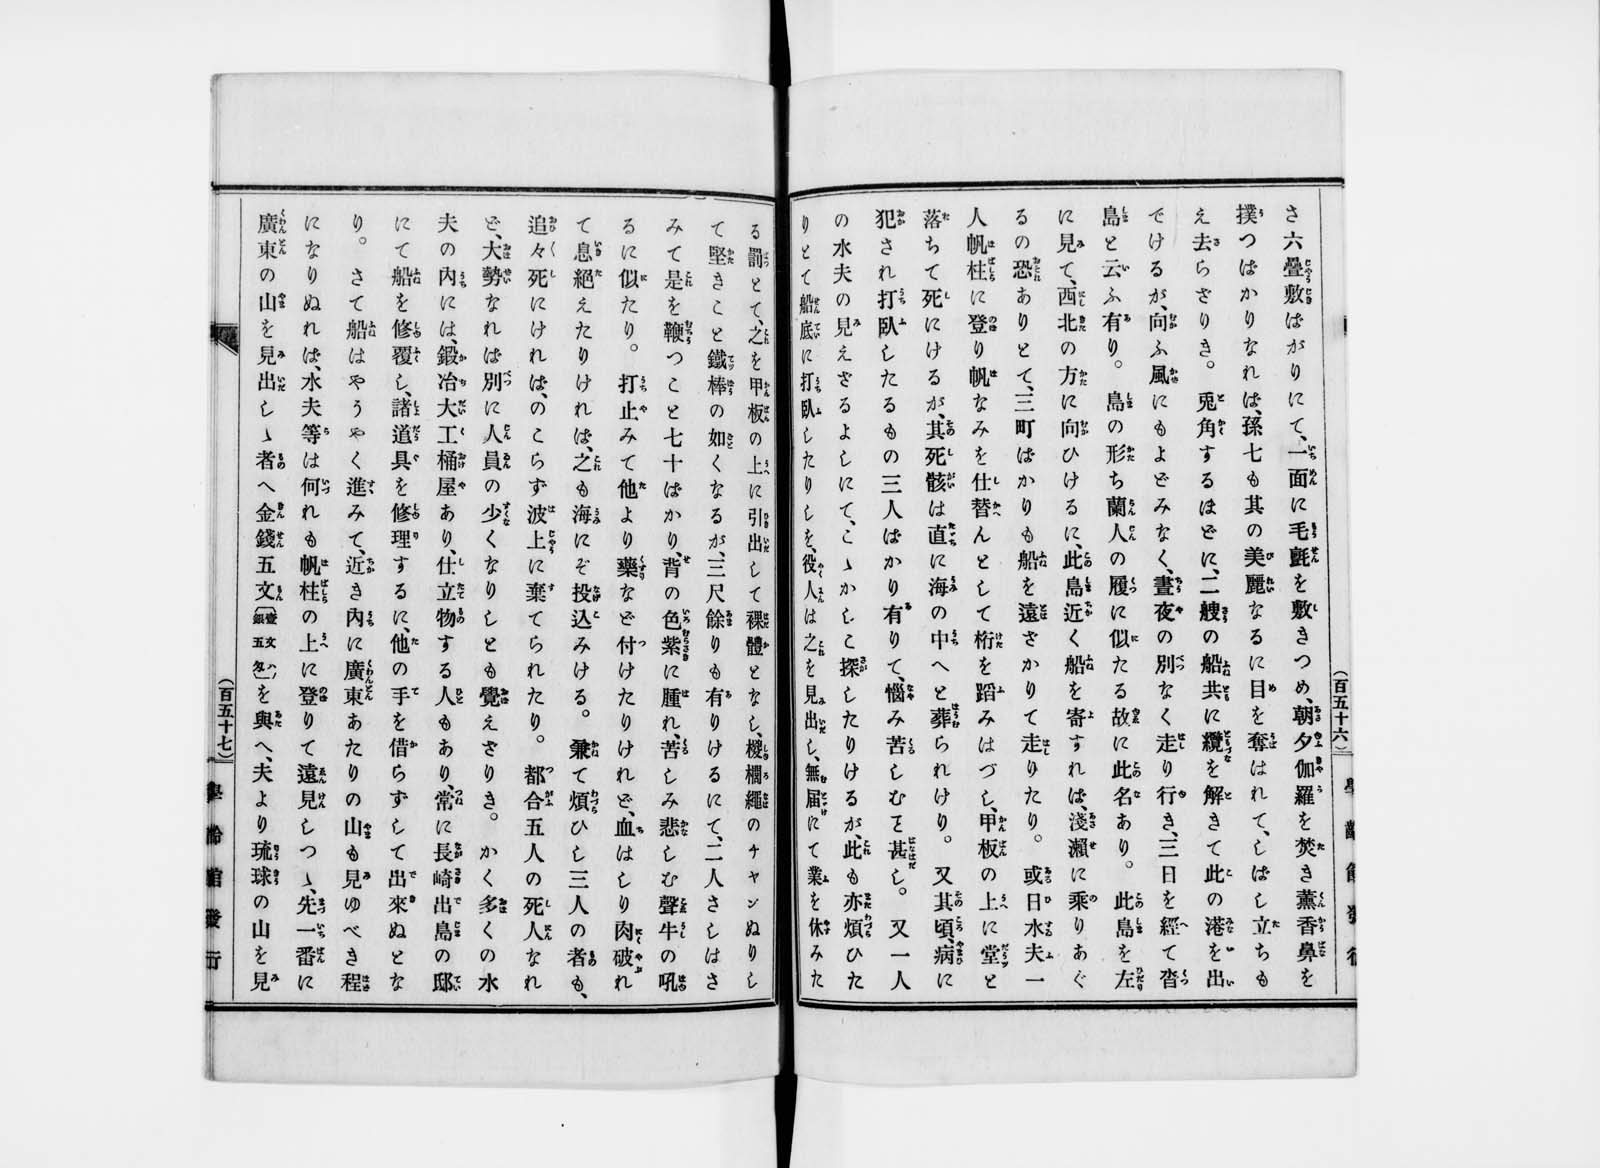 さ六疊敷ばがりにて、一面に毛氈を敷きつめ、朝夕伽羅を焚き薫香鼻を
撲つばかりなれは、孫七も其の美麗なるに目を奪はれて、しばし立ちも
え去らざりき。兎角するほどに、二艘の船共に纜を解きて此の港を出
でけるが、向ふ風にもよどみなく、晝夜の別なく走り行き、三日を經て沓
島と云ふ有り。島の形ち蘭人の履に似たる故に此名あり。此島を左
に見て、西北の方に向ひけるに、此島近く船を寄すれは、淺瀬に乘りあぐ
るの恐ありとて、三町ばかりも船を遠ざかりて走りたり。或日水夫一
人帆柱に登り帆なみを仕替んとして桁を蹈みはづし、甲板の上に堂と
落ちて死にけるが、其死骸は直に海の中へと葬られけり。又其頃、病に
犯され打臥したるもの三人ばかり有りて、惱み苦しむこと甚し。又一人
の水夫の見えざるよしにて、こゝかしこ探したりけるが、此も亦煩ひた
りとて船底に打臥したりしを、役人は之を見出し、無届にて業を休みた
(百五十六)
る罰とて、之を甲板の上に引出して裸體となし、椶櫚繩のチャンぬりし
て堅きこと鐵棒の如くなるが、三尺餘りも有りけるにて、二人さしはさ
みて是を鞭つこと七十ばかり、背の色紫に腫れ、苦しみ悲しむ聲牛の吼
るに似たり。打止みて他より藥など付けたりけれど、血はしり肉破れ
て息絶えたりけれは、之も海にぞ投込みける。兼て煩ひし三人の者も、
追々死にけれは、のこらず波上に棄てられたり。都合五人の死人なれ
ど、大勢なれば別に人員の少くなりしとも覺えざりき。かく多くの水
夫の內には、鍛冶大工桶屋あり、仕立物する人もあり、常に長崎出島の邸
にて船を修覆し、諸道具を修理するに、他の手を借らずして出來ぬとな
り。さて船はやうやく進みて、近き內に廣東あたりの山も見ゆべき程
になりぬれば、水夫等は何れも帆柱の上に登りて遠見しつゝ、先一番に
廣東の山を見出しゝ者へ金錢五文(壹文ハ銀五匁)を與へ、夫より琉球の山を見
(百五十七)
學齡館發行